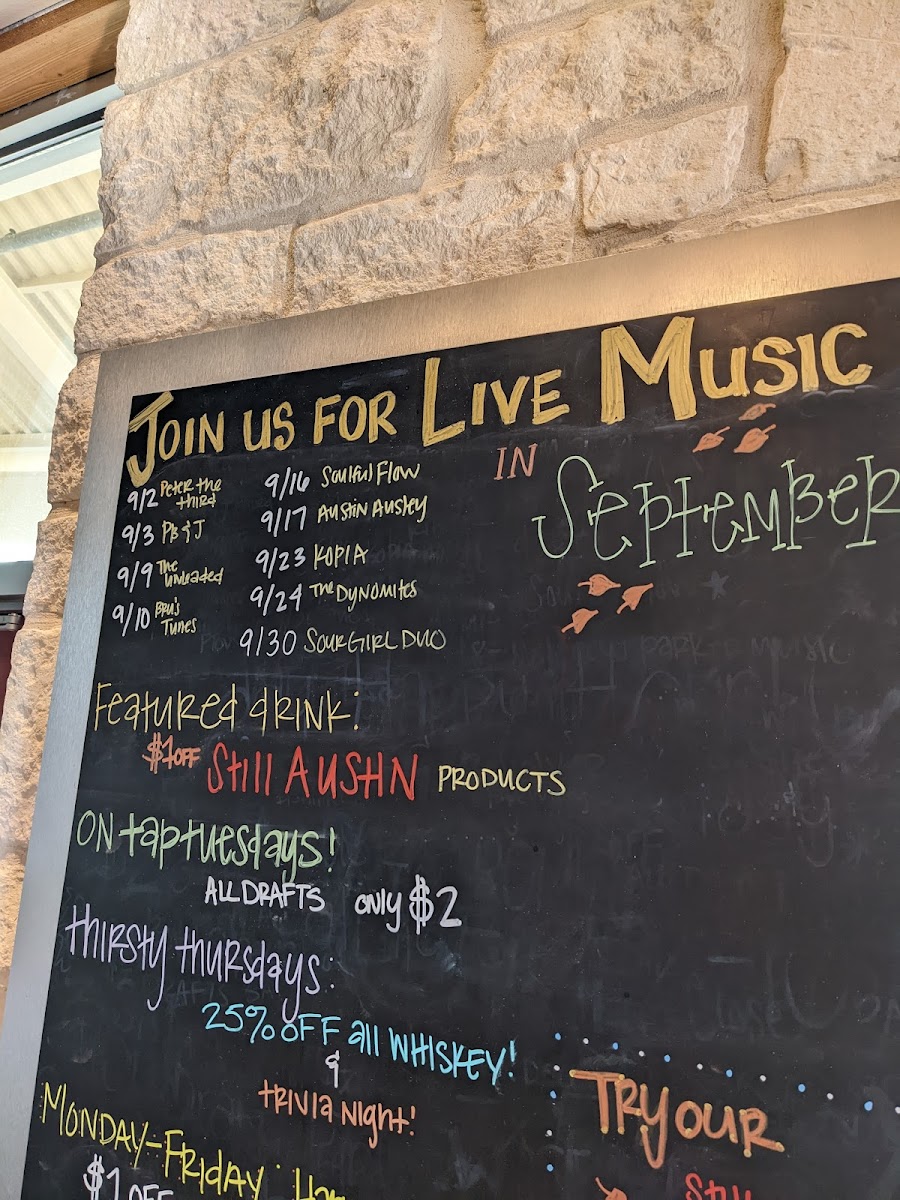 JOIN US FOR LIVE MUSIC
IN
SEPTEMBER
9/2 Peter the
third
9/3 PB & J
9/9 The
Unloaded
9/10 Bru's
Tunes
9/16 Soulful Flow
9/17 Austin Ausley
9/23 KOPIA
9/24 The Dynomites
9/30 SOURGIRL DUO
Featured drink:
$1 OFF Still AUSTIN PRODUCTS
ON tap tuesdays!
ALL DRAFTS only $2
thirsty thursdays:
25% OFF all WHISKEY!
&
tRivia Night!
MONDAY-FRIDAY
$1 OFF
TRY OUR
Still